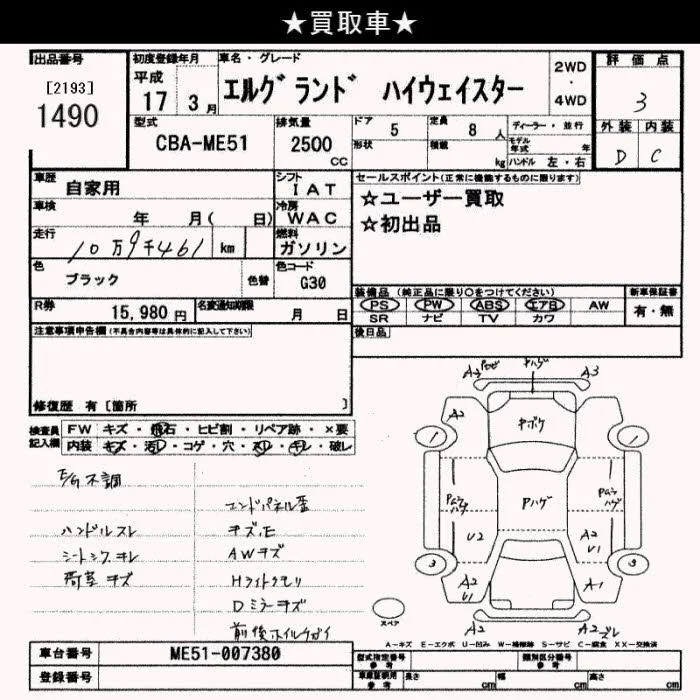 ★買取車★
出品番号
[2193]
1490
初度登録年月
平成
17 3月
車名・グレード
エルグランド ハイウェイスター
2WD
・
4WD
評価点
3
外装 内装
D C
型式
CBA-ME51
排気量
2500
cc
ドア
5
形状
定員
8 人
積載
kg
ディーラー・並行
モデル年式 年
ハンドル 左・右
車歴
自家用
シフト
IAT
車検
年 月( 日)
冷房
WAC
走行
10万9千461 km
燃料
ガソリン
色
ブラック
色替
色コード
G30
R券
15,980 円
名変通知期限
月 日
セールスポイント(正常に機能するものに限ります)
☆ユーザー買取
☆初出品
装備品 (純正品に限り○をつけてください)
PS PW ABS エアB AW
SR ナビ TV カワ
新車保証書
有・無
後日品
注意事項申告欄(不具合内容等は具体的に記入して下さい)
修復歴 有 [箇所 ]
検査員
記入欄
FW キズ・飛石・ヒビ割・リペア跡・×要
内装 キズ・汚レ・コゲ・穴・スレ・キレ・破レ
E/G不調
ハンドルスレ
シートシワ キレ
荷室キズ
エンドパネル歪
キズ,E
AWキズ
Hライトクモリ
Dミラーキズ
A3
A2
Pボケ
Pハゲ
Pムラ
ハゲ
U2
A2
U1
A2
U1
A1
3
3
A2
A2
ズレ
スペア
A-キズ E-エクボ U-凹み W-補修跡 S-サビ C-腐食 XX-交換済
車台番号
ME51-007380
登録番号
型式指定番号
参考
類別区分番号
参考
車庫証明用
参考
長さ cm
幅 cm
高さ cm